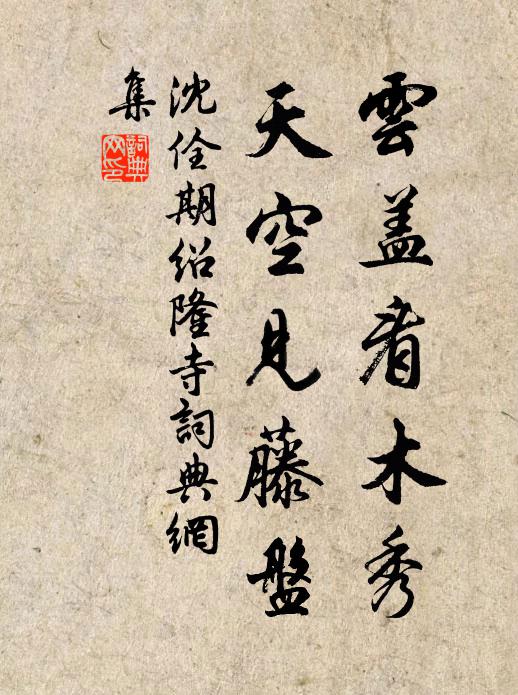 雲盖看木秀
天空見藤盤
沈佺期紹隆寺詞典網
集
詞典
网印